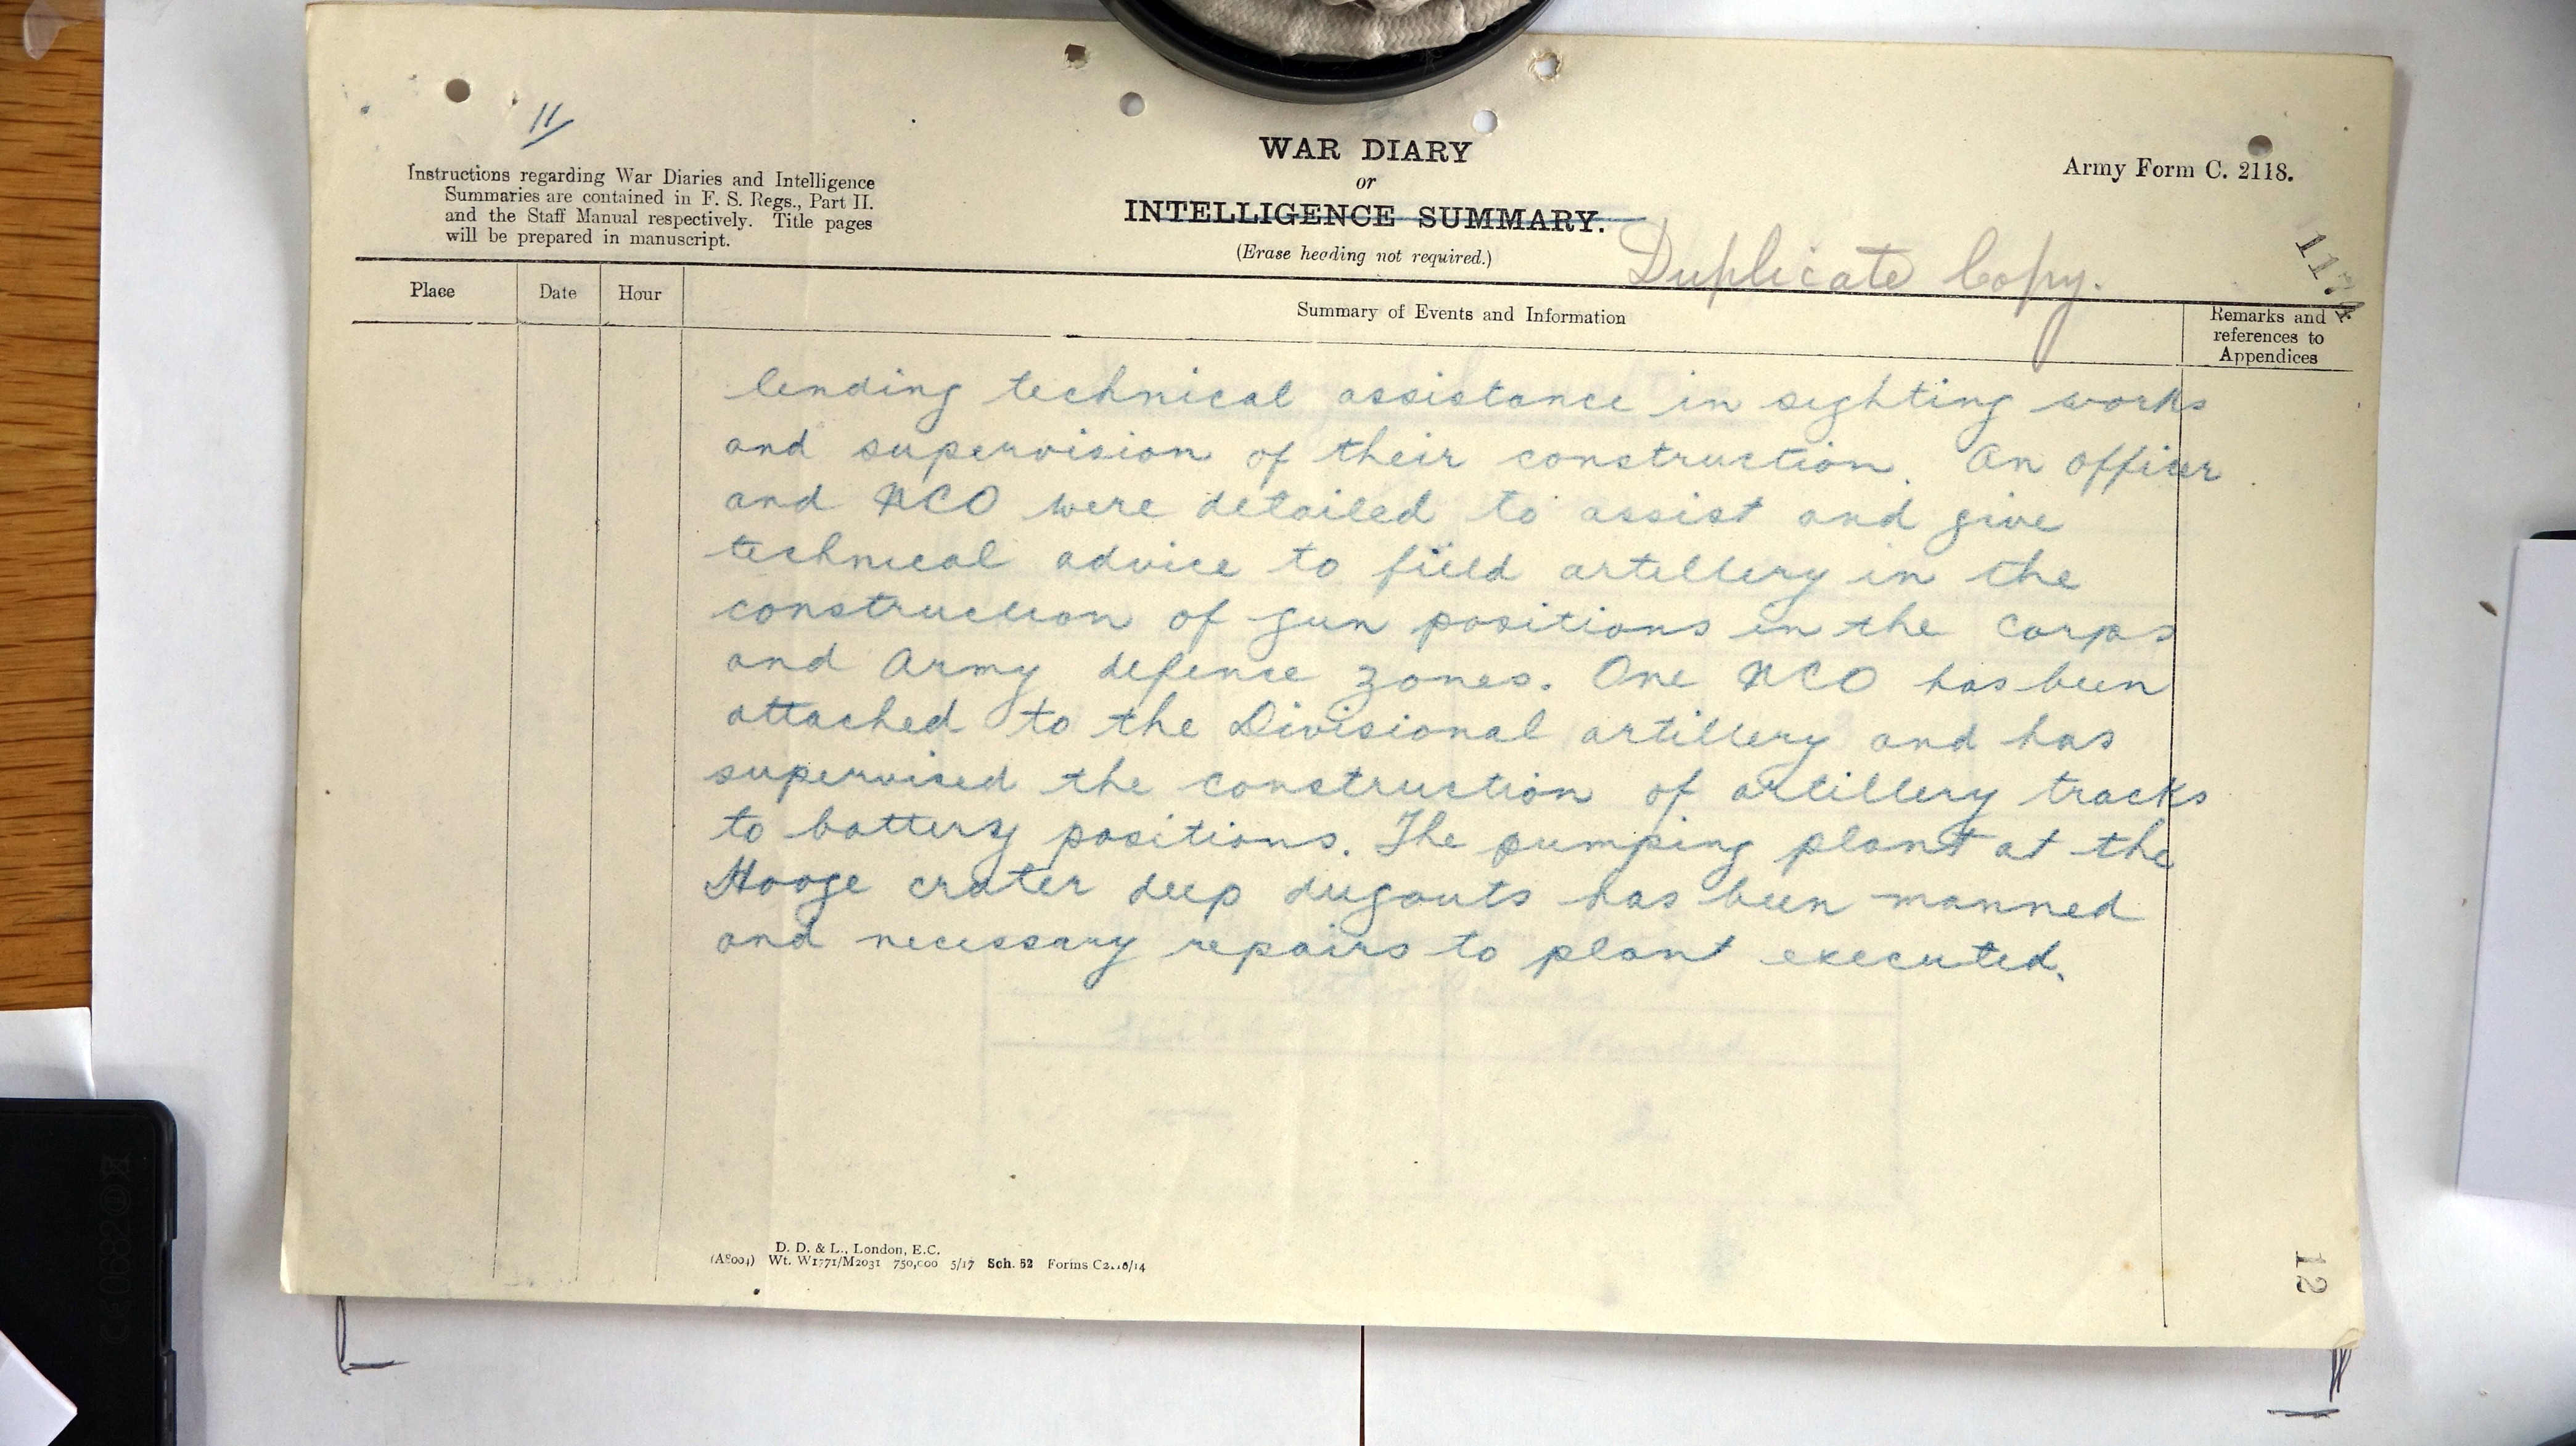 11/
WAR DIARY
or
INTELLIGENCE SUMMARY.
(Erase heading not required.)
Army Form C. 2118.
Instructions regarding War Diaries and Intelligence
Summaries are contained in F. S. Regs., Part II.
and the Staff Manual respectively. Title pages
will be prepared in manuscript.
Duplicate Copy.
Place
Date
Hour
Summary of Events and Information
Remarks and
references to
Appendices
lending technical assistance in sighting works
and supervision of their construction. An officer
and NCO were detailed to assist and give
technical advice to field artillery in the
construction of gun positions in the Corps
and Army defence zones. One NCO has been
attached to the Divisional artillery and has
supervised the construction of artillery tracks
to battery positions. The pumping plant at the
Hooge crater deep dugouts has been manned
and necessary repairs to plant executed.
D. D. & L., London, E.C.
(A8004) Wt. W1771/M2031 750,000 5/17 Sch. 52 Forms C2118/14
12